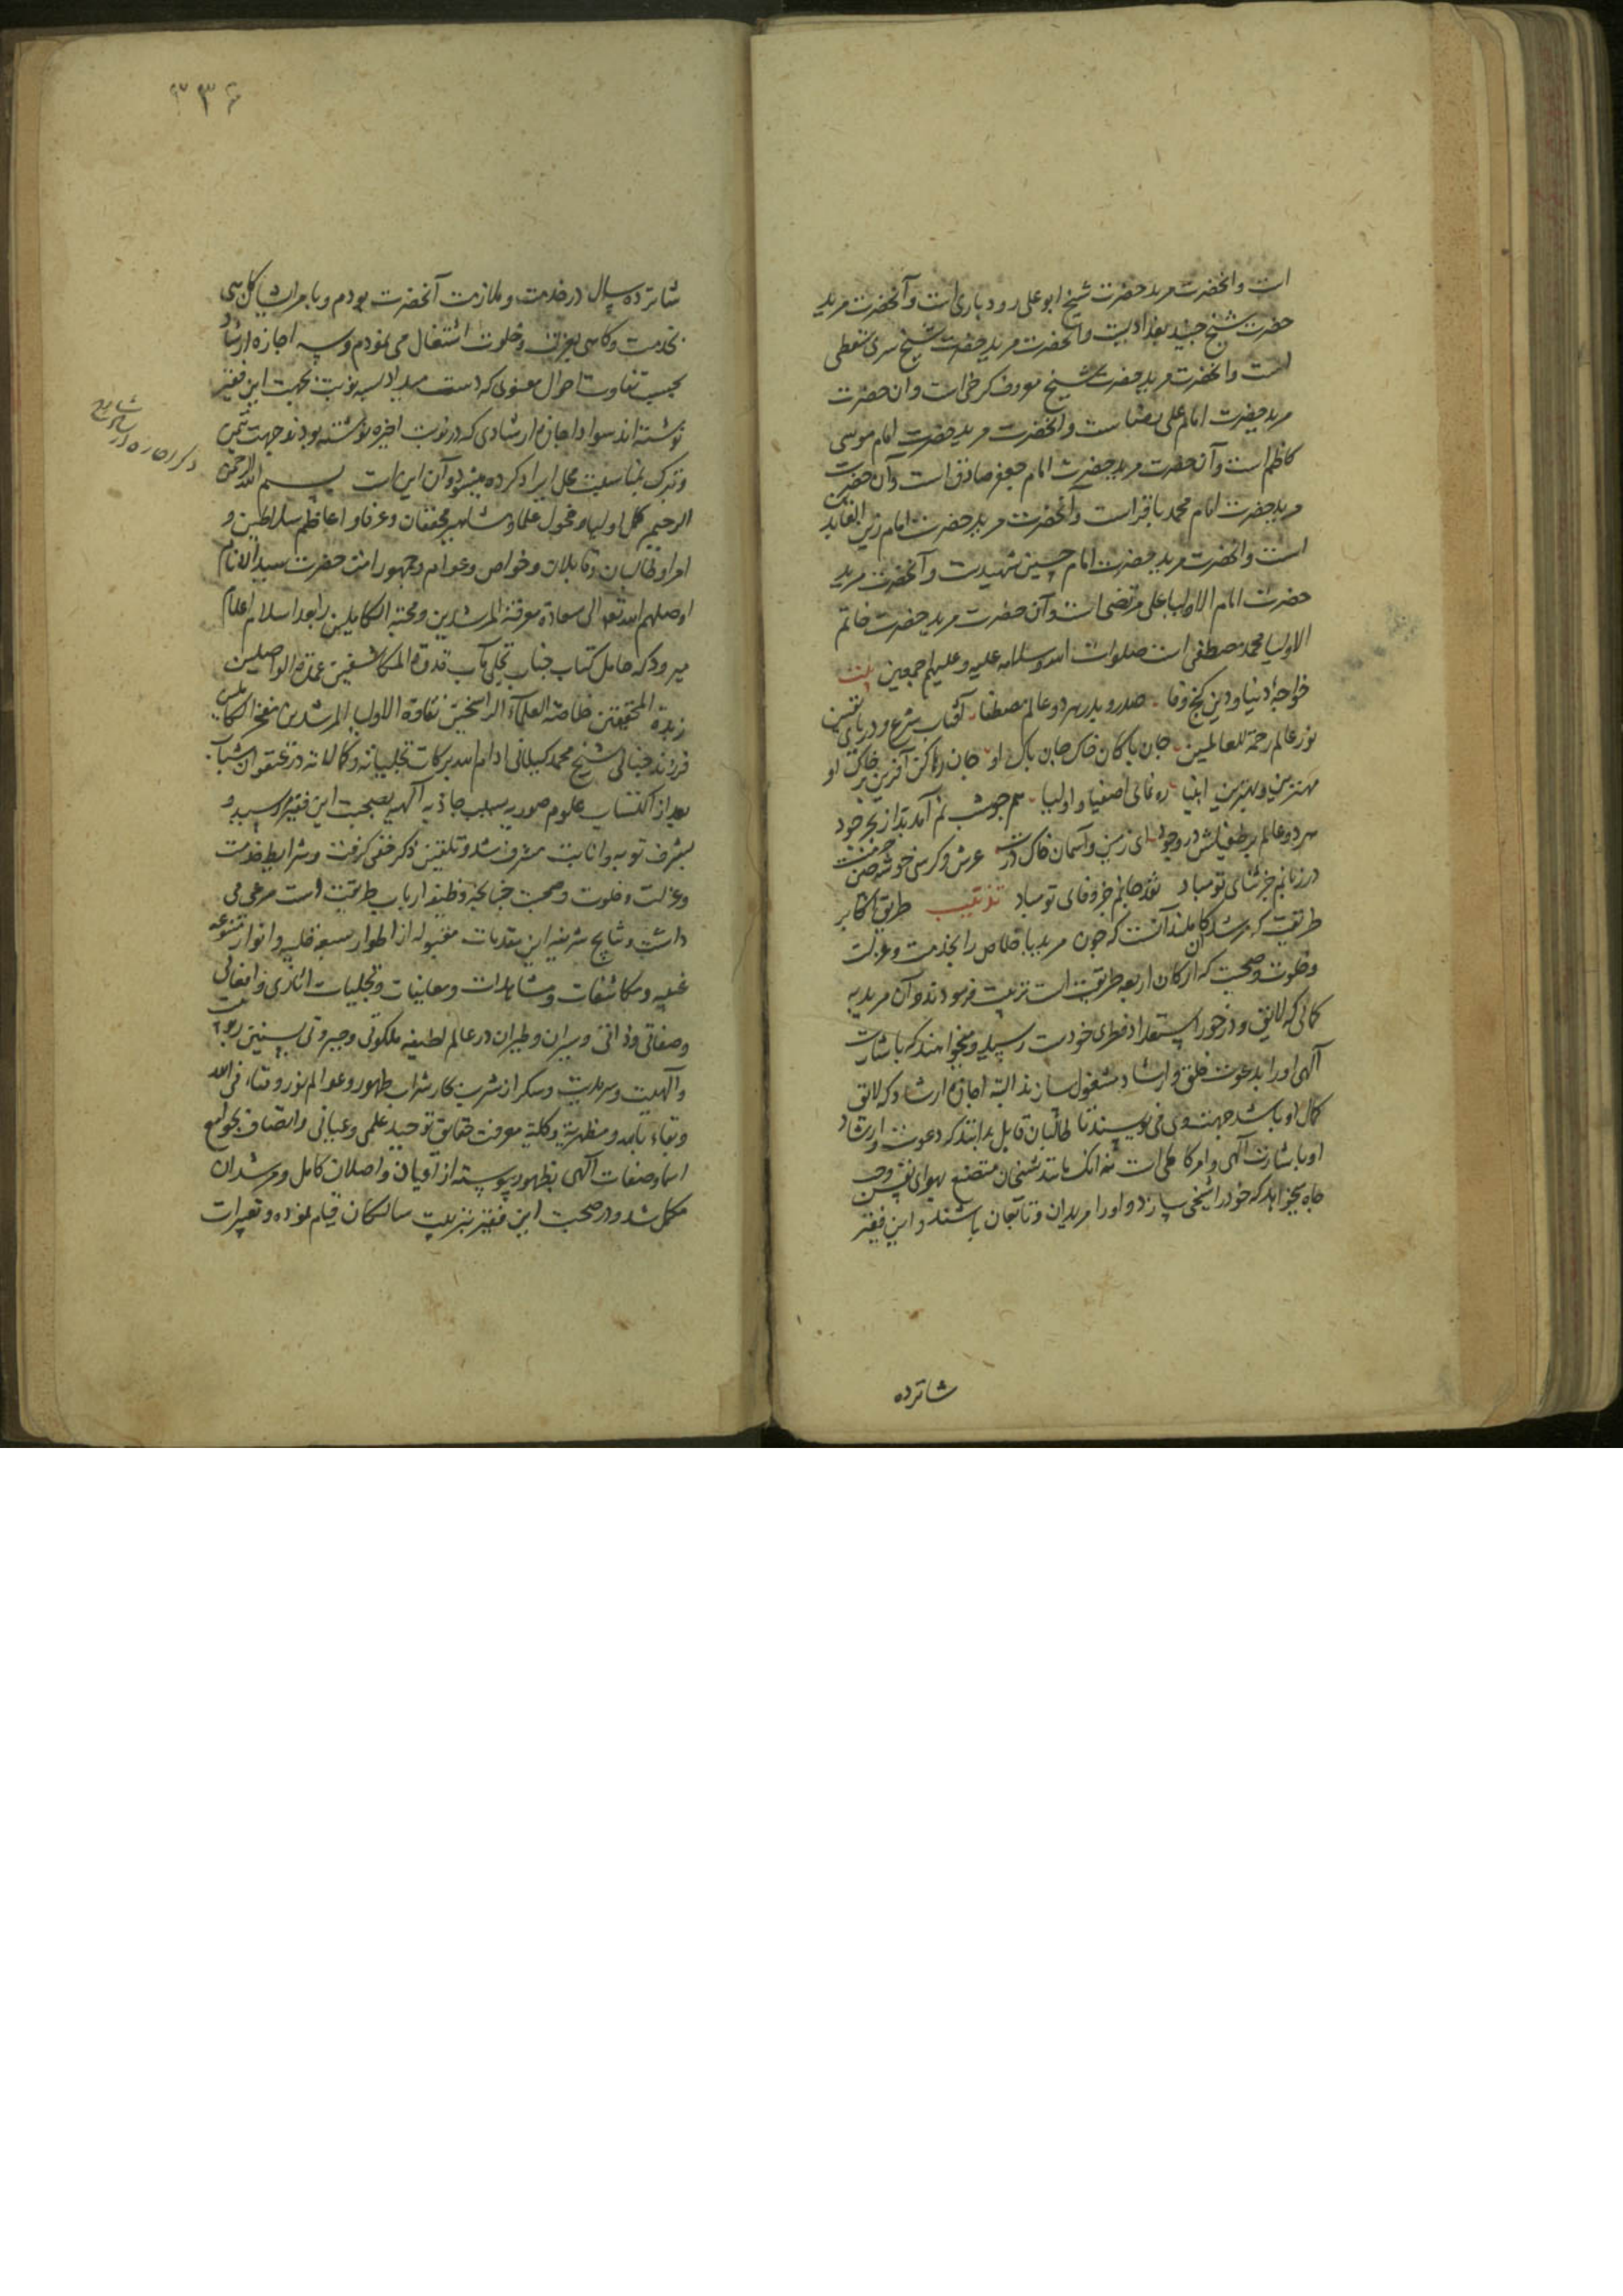 است و آنحضرت مرید حضرت شیخ ابو علی رودباری است و آنحضرت مرید
حضرت شیخ جنید بغدادیست و آنحضرت مرید حضرت شیخ سری سقطی
است و آنحضرت مرید حضرت شیخ معروف کرخی است و آن حضرت
مرید حضرت امام علی رضا است و آنحضرت مرید حضرت امام موسی
کاظم است و آن حضرت مرید حضرت امام جعفر صادق است و آن حضرت
مرید حضرت امام محمد باقر است و آنحضرت مرید حضرت امام زین العابدین
است و آنحضرت مرید حضرت امام حسین شهیدست و آنحضرت مرید
حضرت امام الاولیا علی مرتضی است و آن حضرت مرید حضرت خاتم
الاولیا محمد مصطفی است صلوات الله و سلامه علیه و علیهم اجمعین
خواجه دنیا و دین گنج وفا صدر و بدر هر دو عالم مصطفا آفتاب شرع و دریای یقین
نور عالم رحمة للعالمین جان پاکان خاک جان پاک او جان رها کن آفرینش خاک او
مهترین و بهترین انبیا ره نمای اصفیا و اولیا هم چو شبنم آمدند از بحر جود
هر دو عالم بر طفیلش در وجود ای زمین و آسمان خاک درت عرش و کرسی خوشه چین خرمنت
در زبانم جز ثنای تو مباد نقد جانم جز وفای تو مباد تذنیب طریق اکابر
طریقت که مرشد کاملند آنست که چون مرید باخلاص را بخدمت و عزلت
و خلوت و صحبت که ارکان اربعه طریقت است تربیت فرمودند و آن مرید به
کمالی که لایق و در خور استعداد فطری خودست رسید و میخواهند که باشارت
الهی او را بدعوت خلق و ارشاد مشغول سازند البته اجازه ارشاد که لایق
کمال او باشد جهت وی می نویسند تا طالبان قابل بدانند که دعوت و ارشاد
او باشارت الهی و امر کاملی است نه آنک مانند شیخان متصنع بهوای نفس و حب
جاه میخواهد که خود را شیخی سازد و او را مریدان و تابعان باشند و این فقیر
شانزده
۳۳۶
شانزده سال در خدمت و ملازمت آنحضرت بودم و بامر ایشان گاهی
بخدمت و گاهی بعزلت و خلوت اشتغال می نمودم و سه اجازه ارشاد
بحسب تفاوت احوال معنوی که دست میداد سه نوبت بجهت این فقیر
نوشته اند سواد اجازه ارشادی که در نوبت اخیره نوشته بودند جهت تیمن
و تبرک بمناسبت محل ایراد کرده میشود و آن این است بسم الله الرحمن
الرحیم کمل اولیا و فحول علما و مشاهیر محققان و عرفا و اعاظم سلاطین و
امرا و طالبان و قابلان و خواص و عوام و جمهور امت حضرت سید الانام
اوصلهم الله تعالی سعادة معرفة المرشدین و محبة الکاملین را بعد اسلام اعلام
میرود که حامل کتاب جناب تجلی مآب قدوة المکاشفین عمدة الواصلین
زبدة المحققین خلاصة العلماء الراسخین نقاوة الاولیا المرشدین مفخر الکاملین
فرزند جنانی شیخ محمد گیلانی ادام الله برکات تجلیاته و کمالاته در عنفوان شباب
بعد از اکتساب علوم صوریه بسبب جاذبه الهیه بصحبت این فقیر رسید و
بشرف توبه و انابت مشرف شد و تلقین ذکر خفی گرفت و شرایط خدمت
و عزلت و خلوت و صحبت چنانچه وظیفه ارباب طریقت است مرعی می
داشت و نتایج شریفه این مقدمات مقبوله از اطوار سبعه قلبیه و انوار متنوعه
غیبیه و مکاشفات و مشاهدات و معاینات و تجلیات اثاری و افعالی
و صفاتی و ذاتی و سیران و طیران در عالم لطیفه ملکوتی و جبروتی
و الهیت و سرمدیت و سکر از شرب کاسات شراب طهور و عوالم نور و فناء فی الله
و بقاء بالله و مظهریة و کلیة معرفت حقایق توحید علمی و عیانی و اتصاف بجوامع
اسما و صفات الهی بظهور پیوسته از آویان و اصلان کامل و مرشدان
مکمل شد و در صحبت این فقیر بتربیت سالکان قیام نموده و تعبیرات
ذکر اجازه